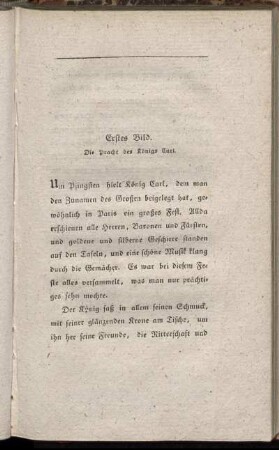 Erstes Bild.
Die Pracht des Königs Carl.
Um Pfingsten hielt König Carl, dem man
den Zunamen des Großen beigelegt hat, ge-
wöhnlich in Paris ein großes Fest. Allda
erschienen alle Herren, Baronen und Fürsten,
und goldene und silberne Geschirre standen
auf den Tafeln, und eine schöne Musik klang
durch die Gemächer. Es war bei diesem Fe-
ste alles versammelt, was man nur prächti-
ges sehn mochte.
Der König saß in allem seinen Schmuck,
mit seiner glänzenden Krone am Tische, um
ihn her seine Freunde, die Ritterschaft und